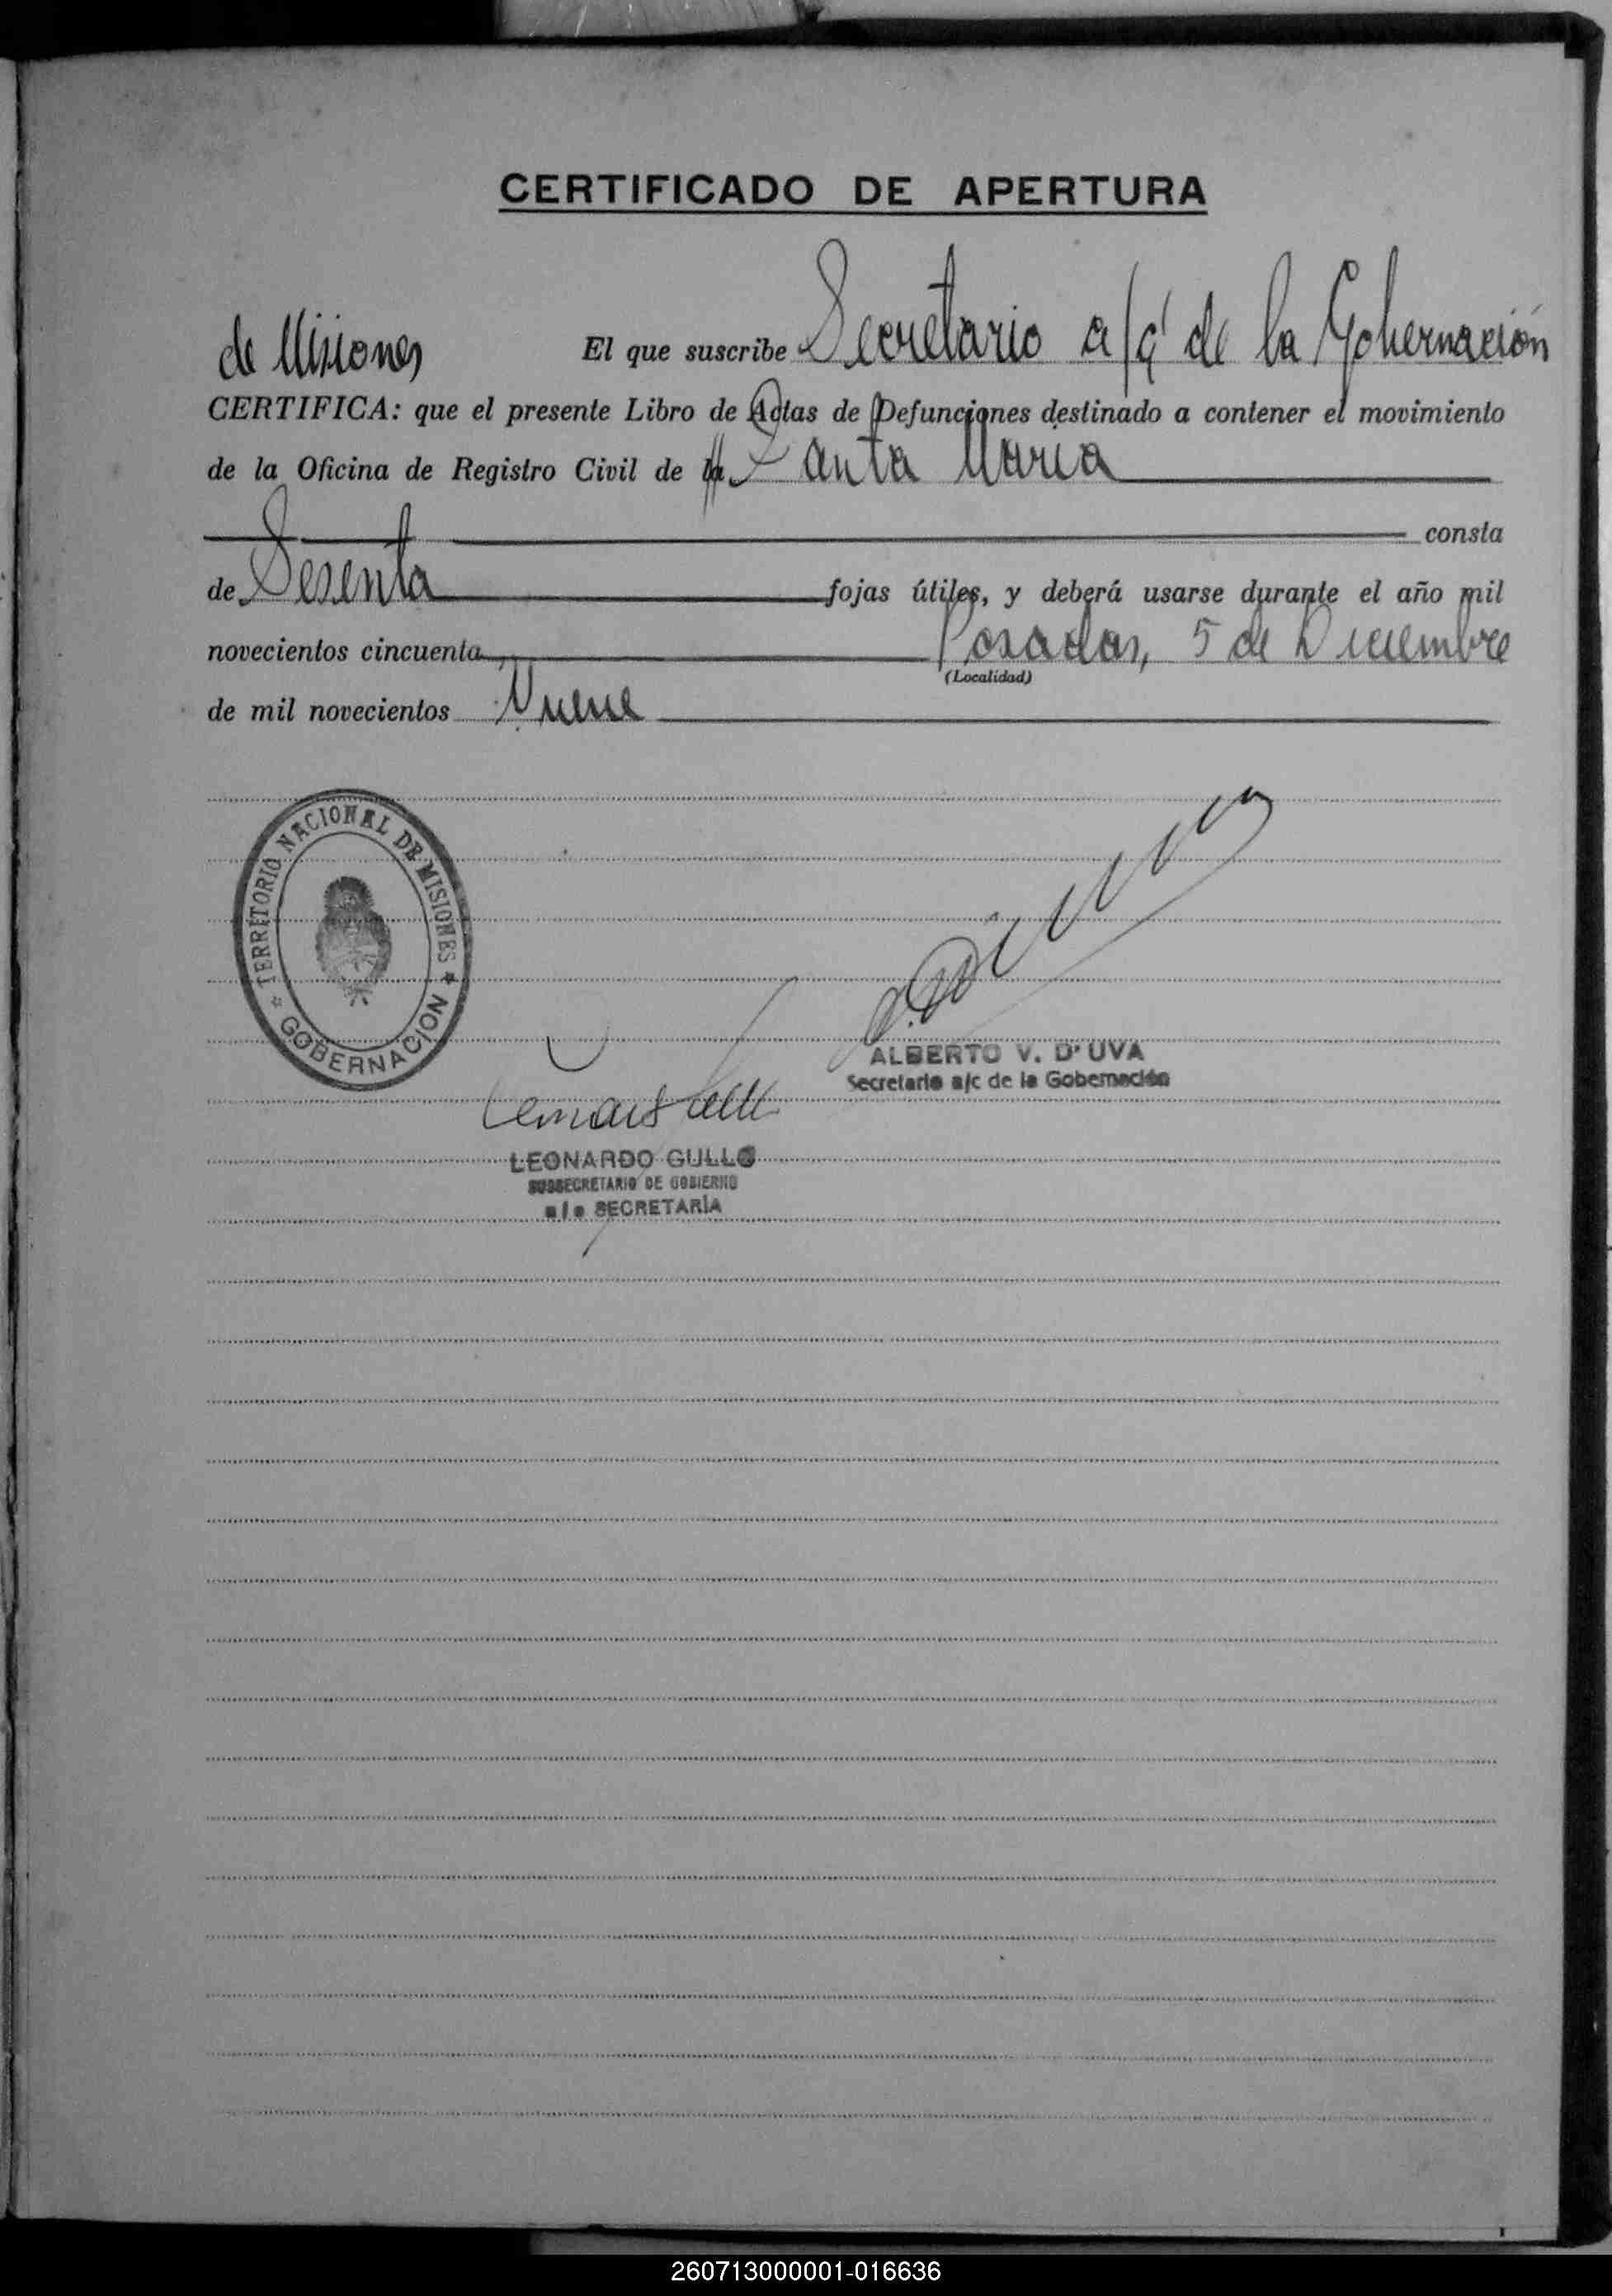 CERTIFICADO DE APERTURA
El que suscribe Secretario a/c de la Gobernación
de Misiones
CERTIFICA: que el presente Libro de Actas de Defunciones destinado a contener el movimiento
de la Oficina de Registro Civil de la Santa María
consta
de Sesenta fojas útiles, y deberá usarse durante el año mil
novecientos cincuenta Posadas, 5 de Diciembre
(Localidad)
de mil novecientos Nueve
TERRITORIO NACIONAL DE MISIONES
GOBERNACION
ALBERTO V. D'UVA
Secretario a/c de la Gobernación
LEONARDO GULLO
SUBSECRETARIO DE GOBIERNO
a/c SECRETARÍA
260713000001-016636